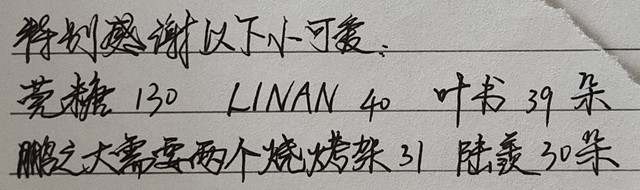 特别感谢以下小可爱：
莞糖 130 LINAN 40 叶书 39 朵
鹏之大需要两个烧烤架 31 陆羡 30 朵